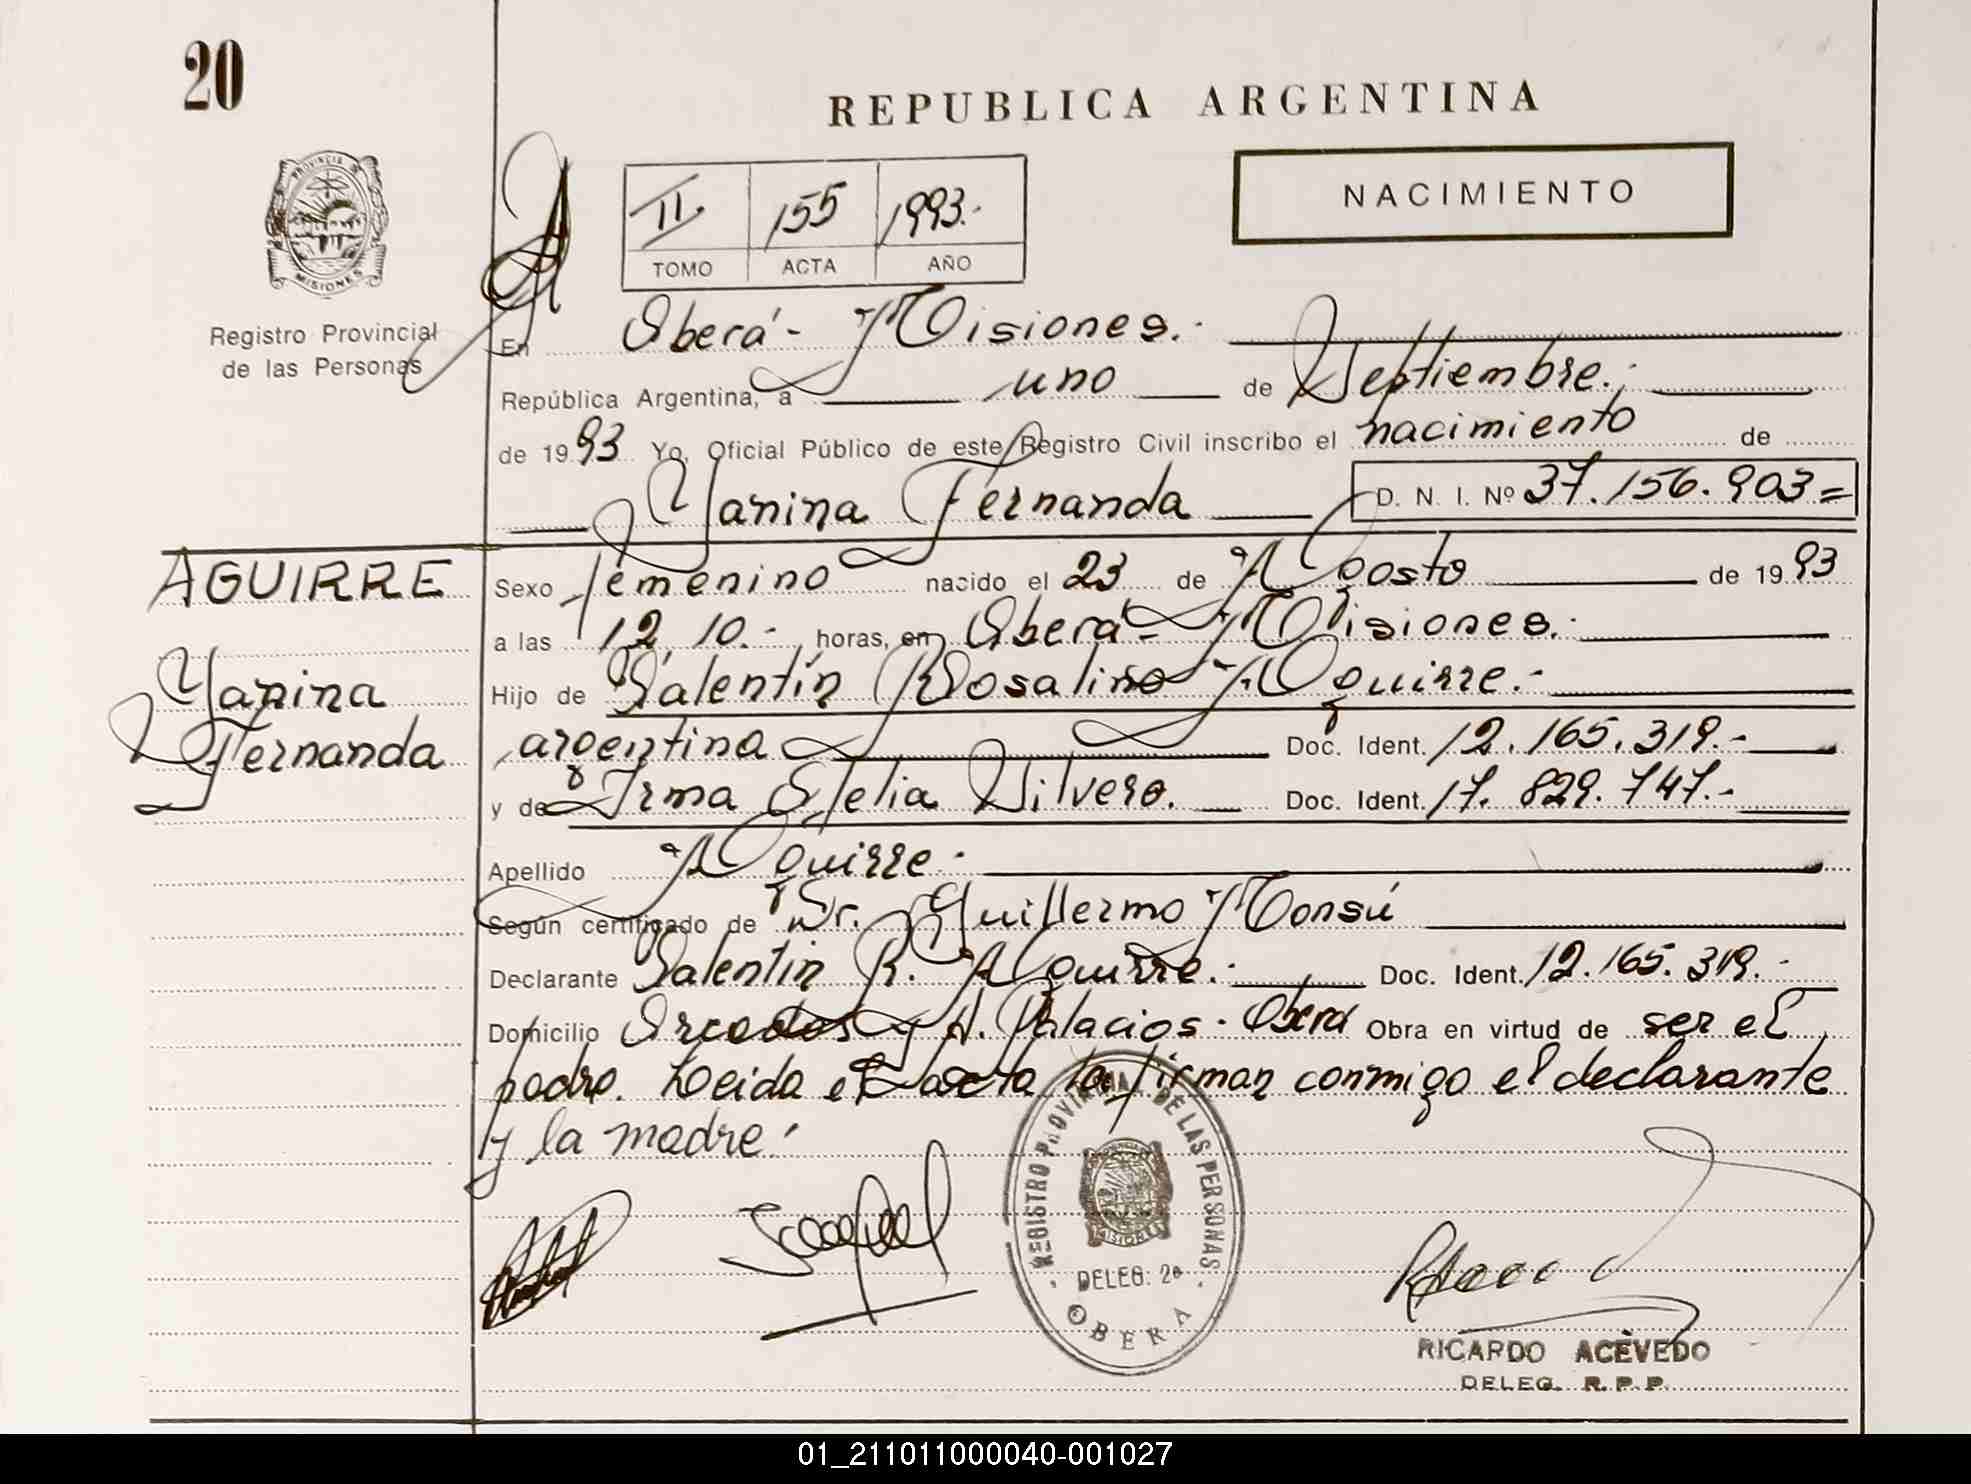 20
REPUBLICA ARGENTINA
PROVINCIA DE
MISIONES
II 155 1993.-
TOMO ACTA AÑO
NACIMIENTO
Registro Provincial
de las Personas
En Oberá - Misiones.-
República Argentina, a uno de Septiembre.-
de 1993 Yo, Oficial Público de este Registro Civil inscribo el nacimiento de
Yanina Fernanda D. N. I. Nº 37.156.903=
AGUIRRE
Yanina
Fernanda
Sexo femenino nacido el 23 de Agosto de 1993
a las 12,10.- horas, en Oberá - Misiones.-
Hijo de Valentín Rosalino Aguirre.-
argentina Doc. Ident. 12.165.319.-
y de Irma Stelia Silvero. Doc. Ident. 17.829.747.-
Apellido Aguirre.-
Según certificado de Dr. Guillermo Monsú
Declarante Valentín R. Aguirre.- Doc. Ident. 12.165.319.-
Domicilio y A. Palacios - Oberá Obra en virtud de ser el
padre. Leida el acta la firman conmigo el declarante
y la madre.
REGISTRO PROVINCIAL DE LAS PERSONAS
MISIONES
DELEG: 2a
OBERA
RICARDO ACEVEDO
DELEG. R.P.P.
01_211011000040-001027